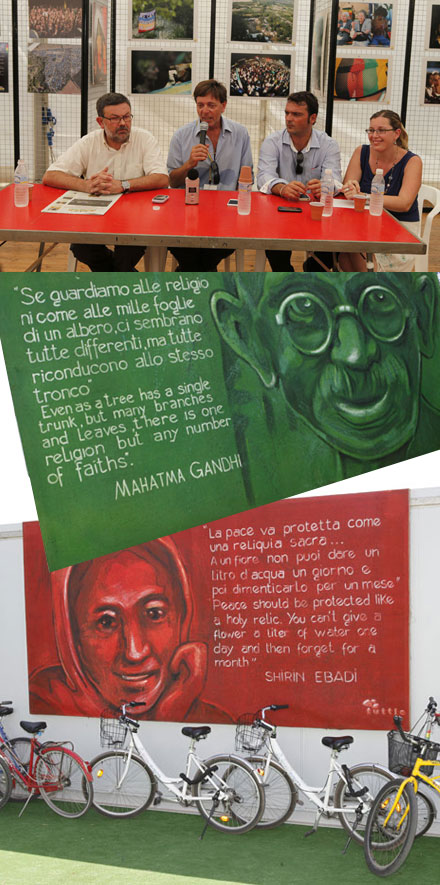 "Se guardiamo alle religio
ni come alle mille foglie
di un albero, ci sembrano
tutte differenti, ma tutte
riconducono allo stesso
tronco"
Even as a tree has a single
trunk, but many branches
and leaves there is one
religion but any number
of faiths".
MAHATMA GANDHI
"La pace va protetta come
una reliquia sacra...
A un fiore non puoi dare un
litro d'acqua un giorno e
poi dimenticarlo per un mese"
Peace should be protected like
a holy relic. You can't give a
flower a liter of water one
day and then forget for a
month"
SHIRIN EBADI
tuttle